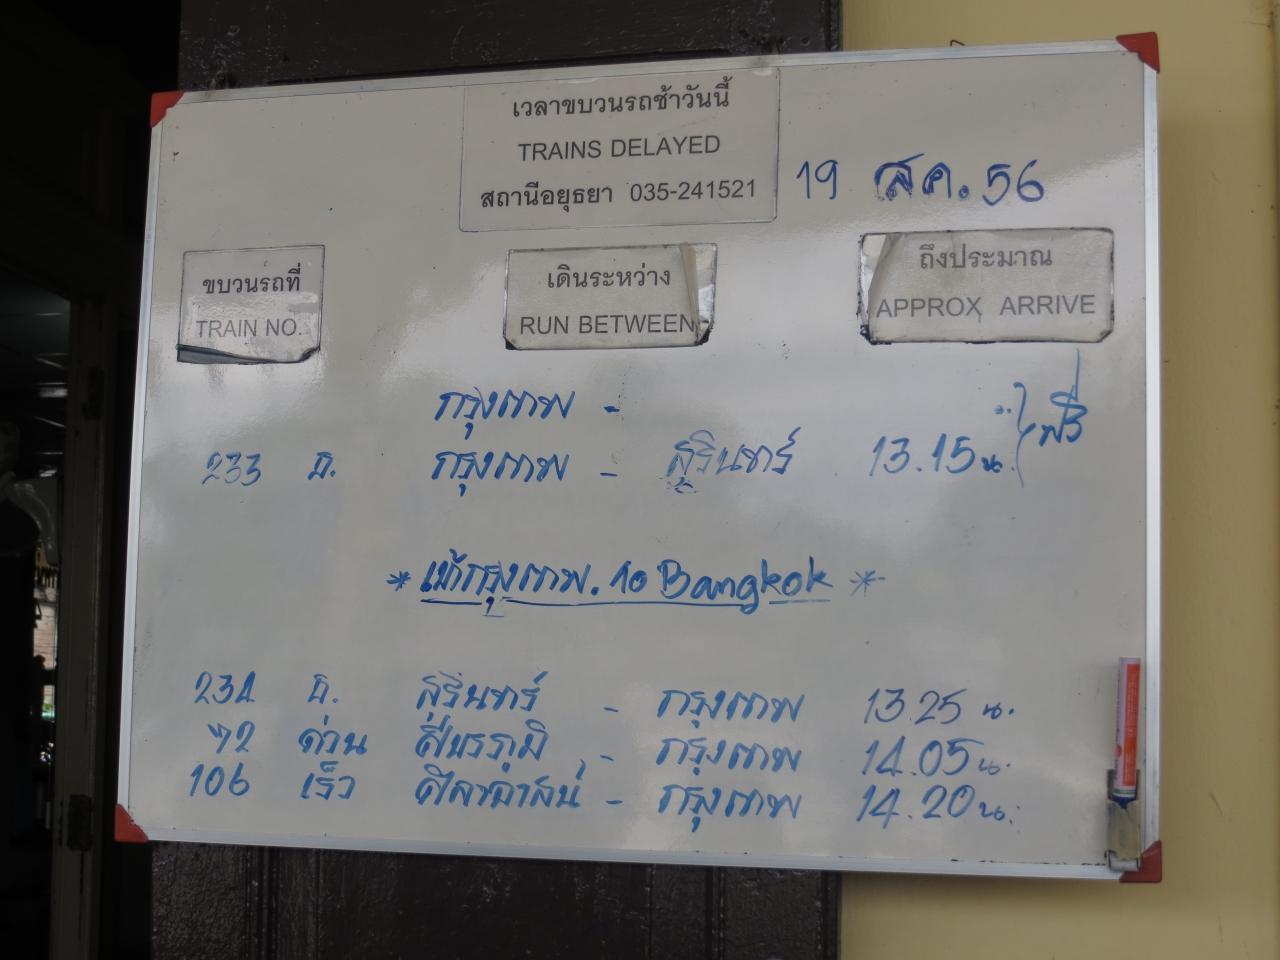 เวลาขบวนรถช้าวันนี้
TRAINS DELAYED
สถานีอยุธยา 035-241521
19 สค. 56
ขบวนรถที่
TRAIN NO.
เดินระหว่าง
RUN BETWEEN
ถึงประมาณ
APPROX ARRIVE
กรุงเทพ -
233 ธ. กรุงเทพ - สุรินทร์ 13.15 น. ฟรี
* เข้ากรุงเทพ. To Bangkok *
234 ธ. สุรินทร์ - กรุงเทพ 13.25 น.
72 ด่วน ศีขรภูมิ - กรุงเทพ 14.05 น.
106 เร็ว ศิลาอาสน์ - กรุงเทพ 14.20 น.